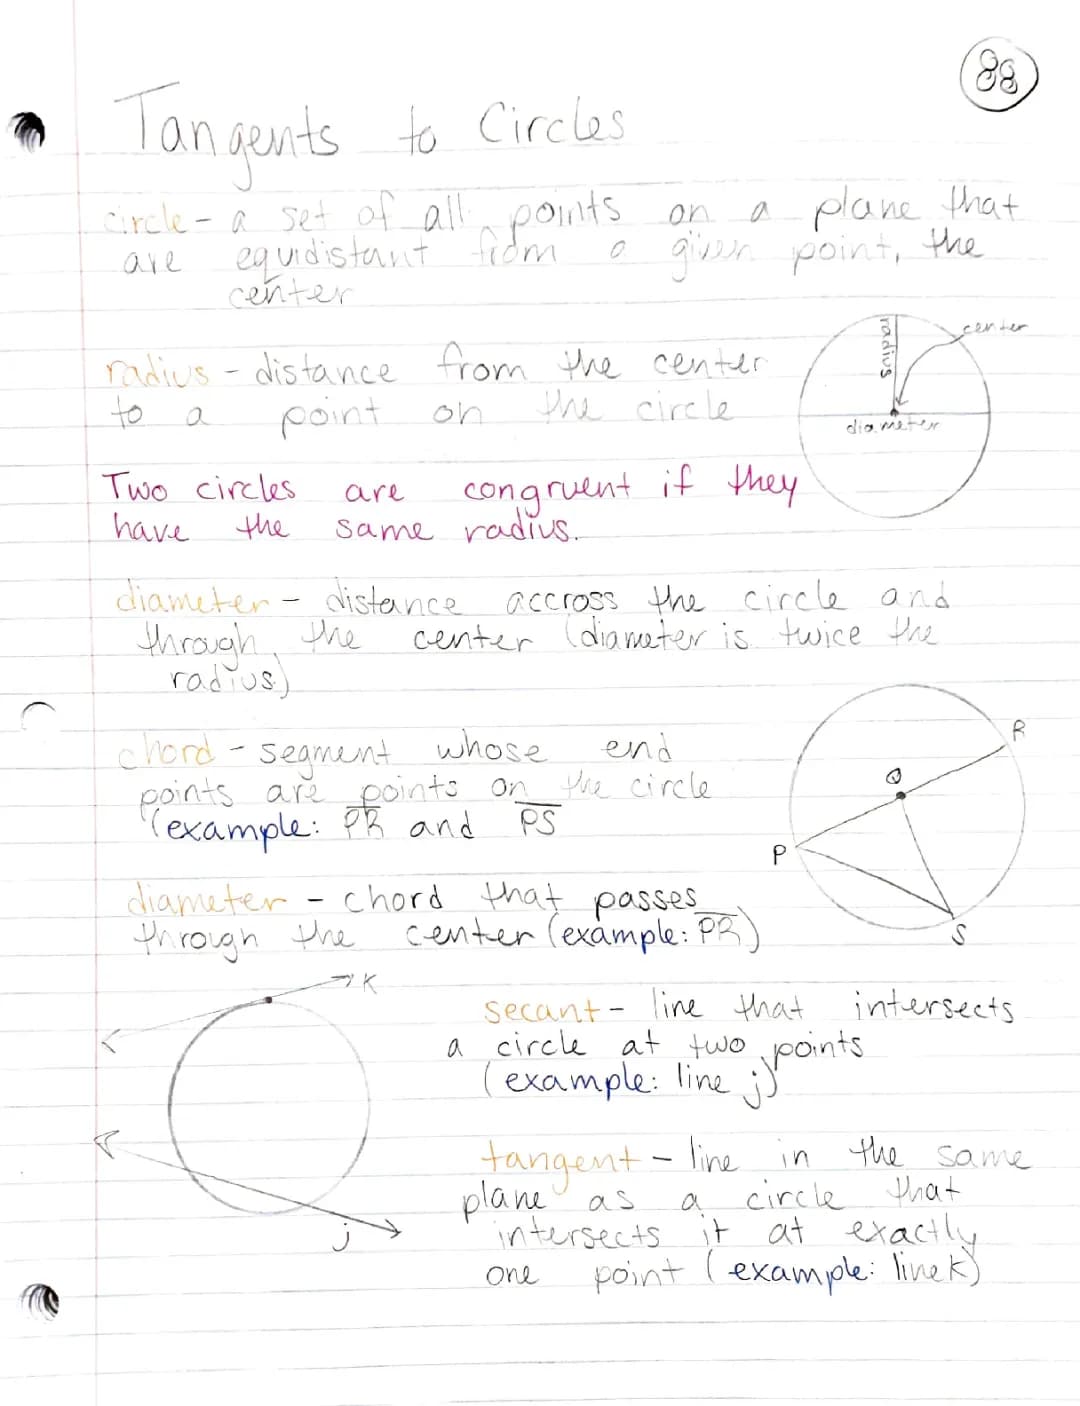 88
Tangents to Circles
circle - a set of all points on a plane that
are equidistant from a given point, the
center
radius - distance from the center
to a point on the circle
radius
center
diameter
Two circles are congruent if they
have the same radius.
diameter - distance accross the circle and
through the center (diameter is twice the
radius)
chord - segment whose end
points are points on the circle
(example: PR and PS
R
Q
P
S
diameter - chord that passes
through the center (example: PR)
K
j
secant - line that intersects
a circle at two points
(example: line j)
tangent - line in the same
plane as a circle that
intersects it at exactly
one point (example: line K)